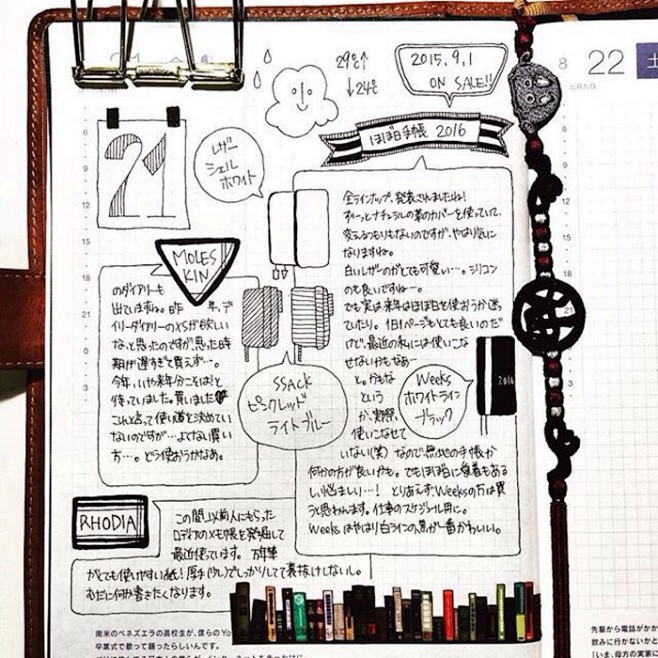 29℃↑
↓24℃
2015.9.1
ON SALE!!
8
22
土
ほぼ日手帳 2016
21
レザー
シェル
ホワイト
全ラインナップ、発表されましたね!
ずーっとナチュラルの革のカバーを使っていて、
変えるつもりもないのですが、やはり気に
なりますね。
白いレザーのがとても可愛い…。シリコン
のも良いですねー。
でも実は来年はほぼ日を使おうか迷っ
ていたり。1日1ページもとても良いのだ
けど、最近の私には使いこな
せないかもなあー
と。かもな
という
か、実際、
使いこなせて
いない(笑) なので無地の手帳か
何かの方が良いかも。でもほぼ日に愛着もある
し、悩ましい…! とりあえず、Weeksの方は買
うと思われます。仕事のスケジュール用に。
Weeks はやはり白ラインの黒が一番かわいい。
MOLES
KIN
のダイアリーも
出ていますね。昨年、デ
イリーダイアリーのXSが欲しい
な、と思ったのですが、思った時
期が遅すぎて買えず…。
今年、いや来年分こそは!と
待っていました。買いました
これと言って使い道を決めてい
ないのですが…よくない買い
方…。どう使おうかなあ。
SSACK
ピンクレッド
ライトブルー
Weeks
ホワイトライン
ブラック
2016
RHODIA
この間、以前人にもらった
ロディアのメモ帳を発掘して
最近使っています。万年筆
がとても使いやすい紙!厚手(?)でしっかりしてて裏抜けしないし。
むだに何か書きたくなります。
南米のベネズエラの高校生が、僕らのYo
卒業式で歌って踊ったらしいんです。
先輩から電話がかか
飲みに行かないかと
「いま、母方の実家に